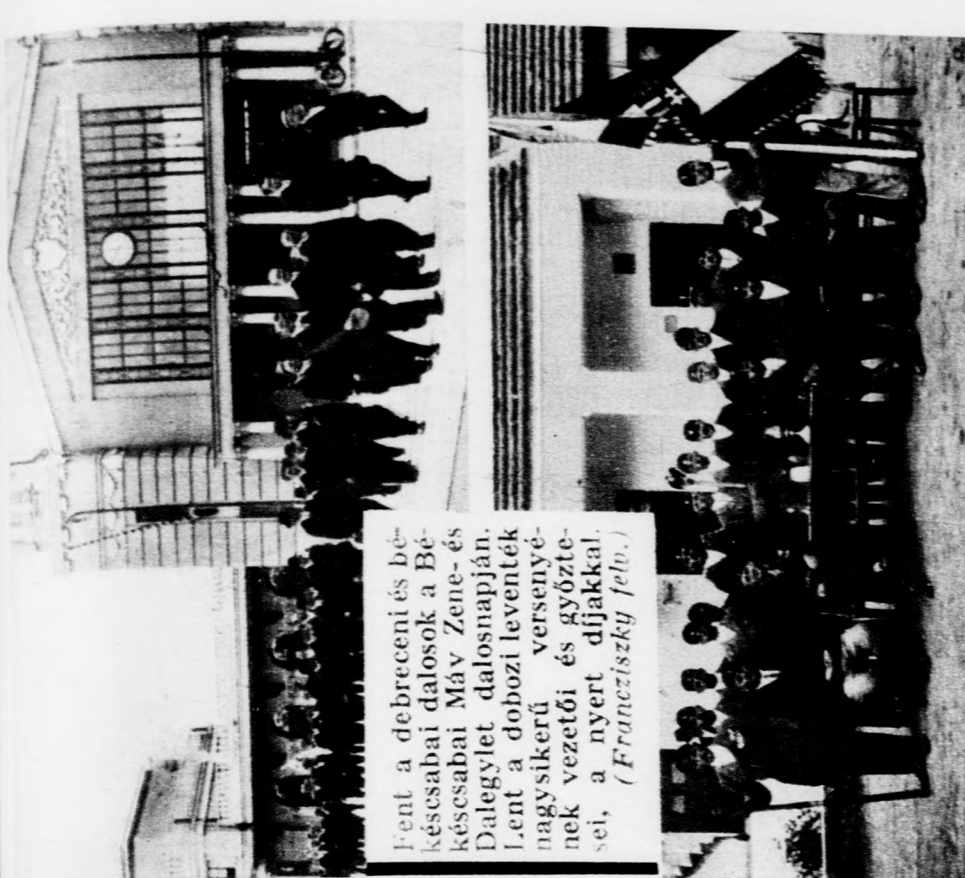 Fent a debreceni és bé-
késcsabai dalosok a Bé-
késcsabai Máv Zene- és
Dalegylet dalosnapján.
Lent a dobozi leventék
nagysikerű versenyé-
nek vezetői és győzte-
sei, a nyert díjakkal.
(Francziszky felv.)